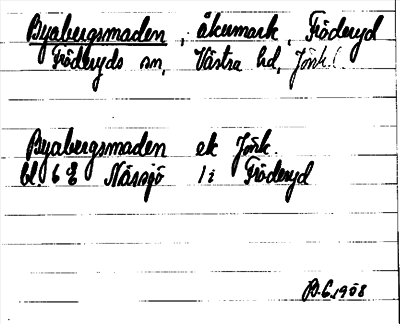 Byabergsmaden, åkermark, Fröderyd
Fröderyds sn, Västra hd, Jönk.l.
Byabergsmaden ek Jönk.
bl. 6 E Nässjö 1i Fröderyd
1958